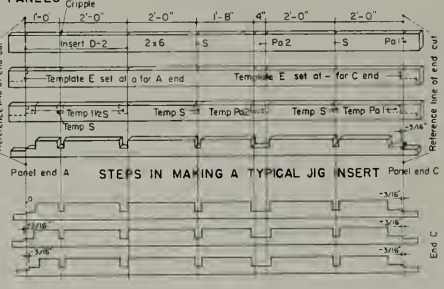 PANELS
Cripple
1'-0" 2'-0" 2'-0" 1'-8" 4" 2'-0" 2'-0"
Insert D-2 2x6 S Pa2 S Pa1
Template E set at o for A end Template E set at - for C end
Temp 1½S Temp S Temp Pa2 Temp S Temp Pa1
Temp S
-3/16"
Reference line of end cut
Reference line of end cut
Panel end A STEPS IN MAKING A TYPICAL JIG INSERT Panel end C
0 -3/16"
-3/16" -3/16"
-3/16"
End C